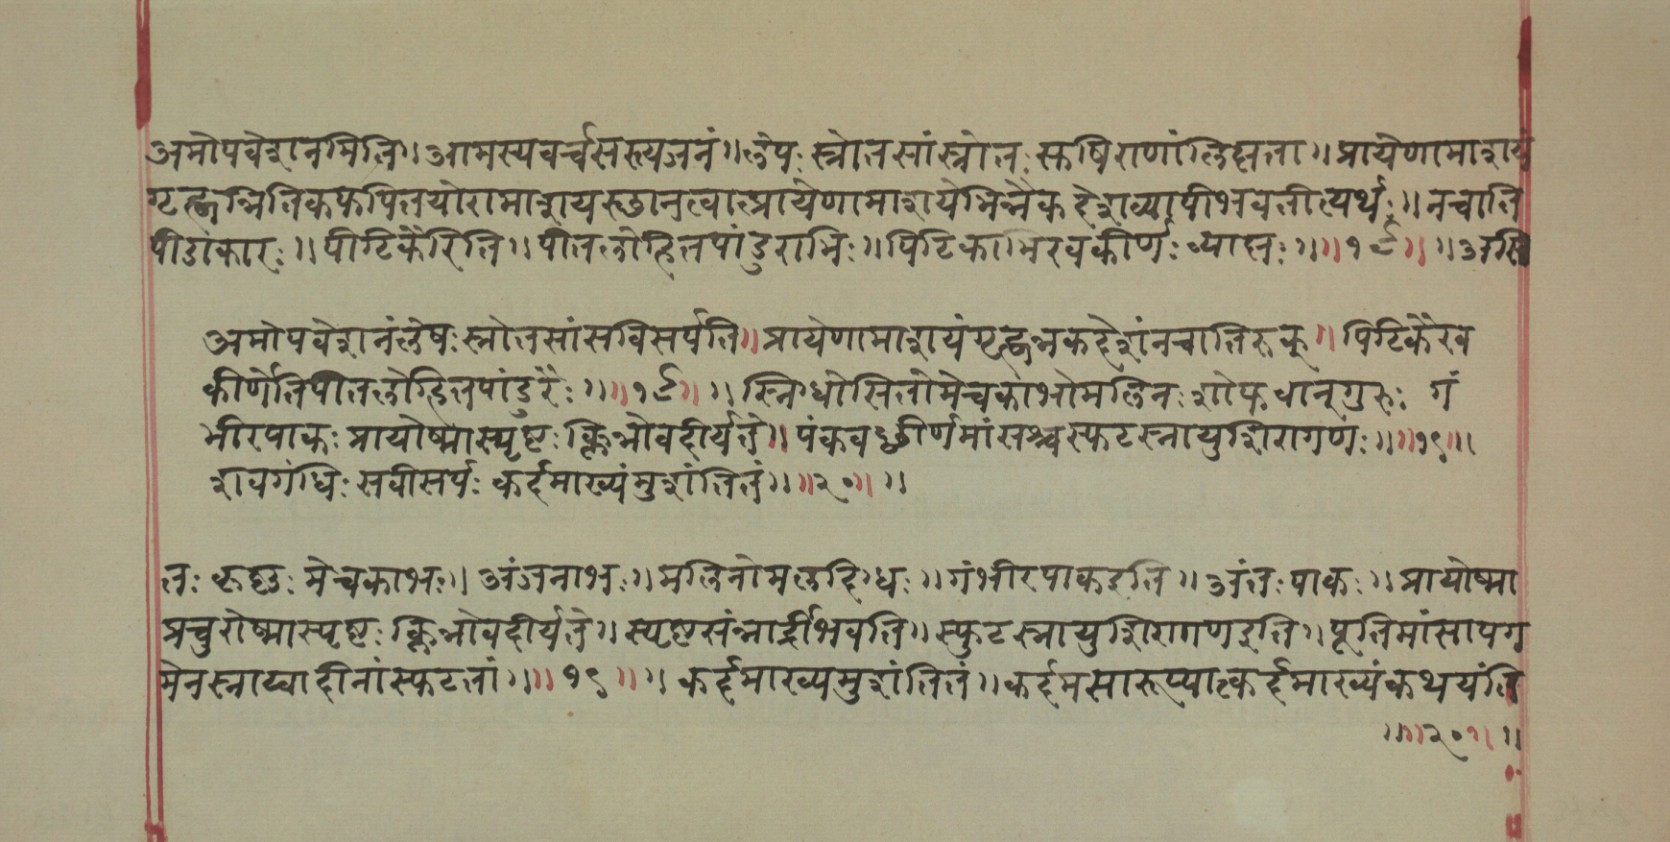 अमोपवेशनमिति॥ आमस्यवर्च्चसस्त्यजनं॥ लेपः स्त्रोतसांस्त्रोतः सुषिराणांलिप्तता॥ प्रायेणामाशयं
गृह्णन्नितिकफपित्तयोरामाशयस्छानत्वात्प्रायेणामाशयेभिन्नैकदेशव्यापीभवतीत्यर्थः॥ नचाति
पीडाकारः॥ पीटिकैरिति॥ पीतलोहितपांडुराभिः॥ पिटिकाभिरवकीर्णः व्याप्तः॥ ॥१८॥ ॥असि
अमोपवेशनंलेषः स्त्रोतसांसविसर्पति॥ प्रायेणामाशयंगृह्णन्नकदेशंनचातिरुक्॥ पिटिकैरव
कीर्णेतिपीतलोहितपांडुरैः॥ ॥१८॥ ॥ स्निग्धोसितोमेचकाभोमलिनः शोफवान्गुरुः गं
भीरपाकः प्रायोष्मास्पृष्टः क्लिन्नोवदीर्यते॥ पंकवछीर्णमांसश्चस्फटस्नायुशिरागणः॥ ॥१९॥
शवगंधिः सवीसर्पः कर्दमाख्यंमुशंतितं॥ ॥२०॥ ॥
तः कृष्णः मेचकाभः॥ अंजनाभः॥ मलिनोमलदिग्धः॥ गंभीरपाकइति॥ अंतः पाकः॥ प्रायोष्मा
प्रचुरोष्मास्पृष्टः क्लिन्नोवदीर्यते॥ स्पृष्टसंन्नार्द्रीभवति॥ स्फुटस्नायुशिरागणइति॥ पूतिमांसापग
मेनस्नाय्वादीनांस्फटतां॥ ॥१९॥ ॥ कर्दमाख्यमुशंतितं॥ कर्दमसारूप्यात्कर्दमाख्यंकथयंति
॥ ॥२०॥ ॥